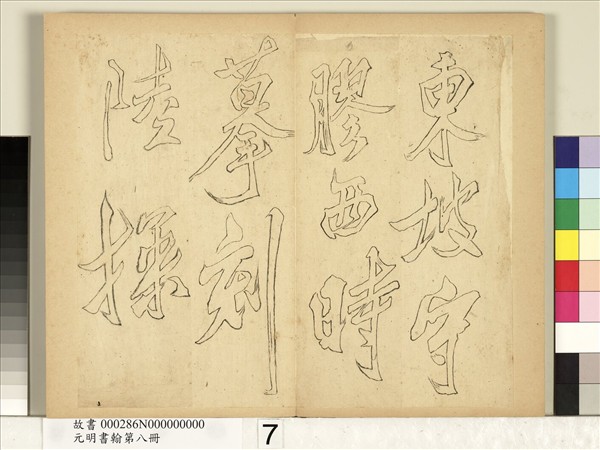 東坡守
膠西時
摹刻
陸探
故書 000286N000000000
元明書翰第八冊
7